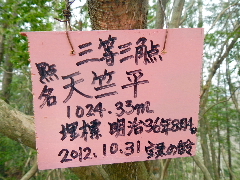 三等三角点
点名 天竺平
1024.33m
埋標 明治36年8月
2012.10.31